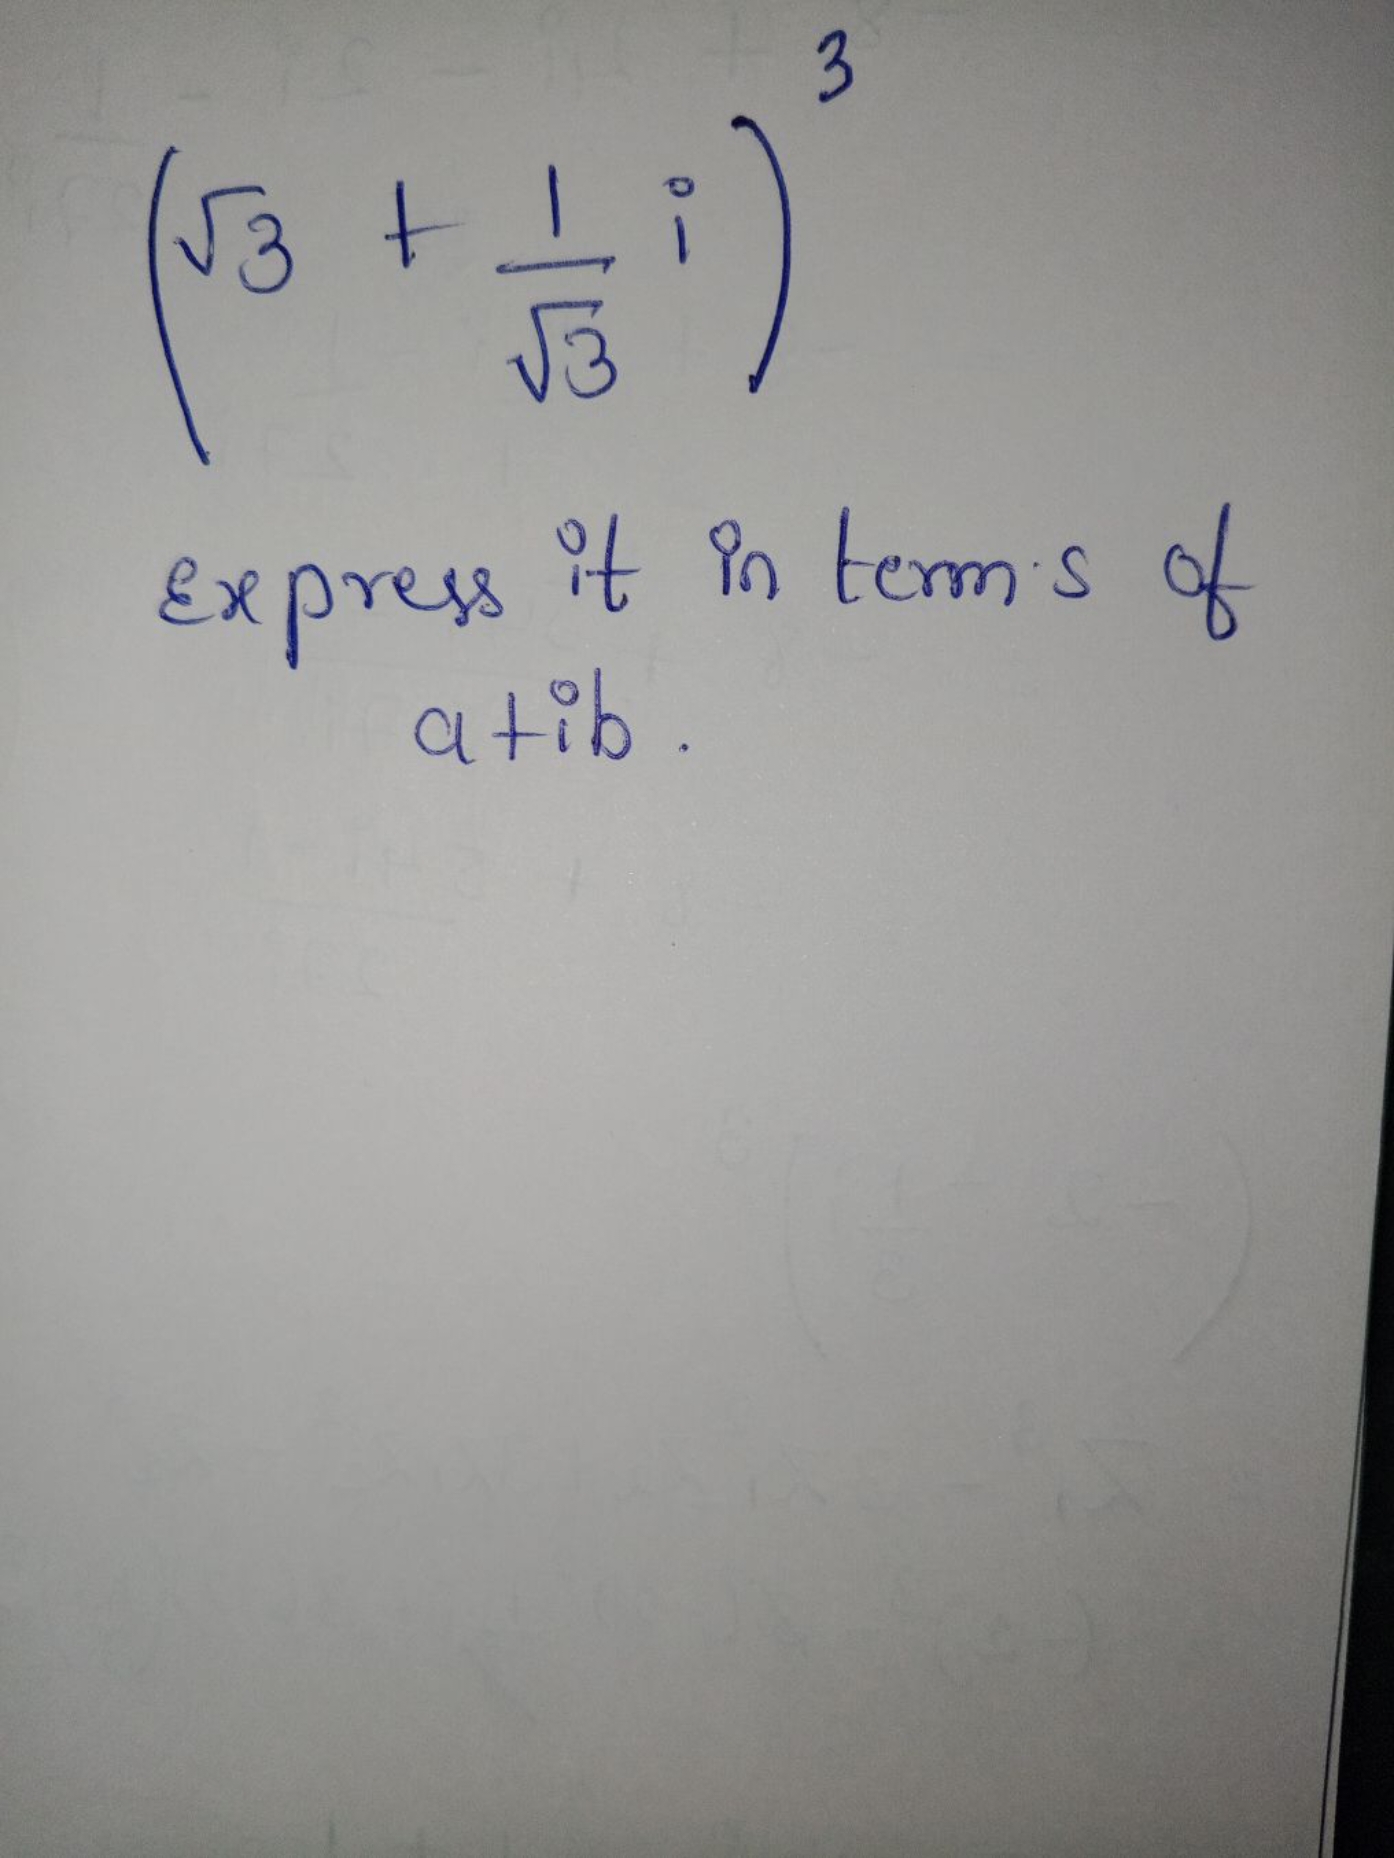 (√3 + 1/√3 i)³
Express it in terms of
a+ib.